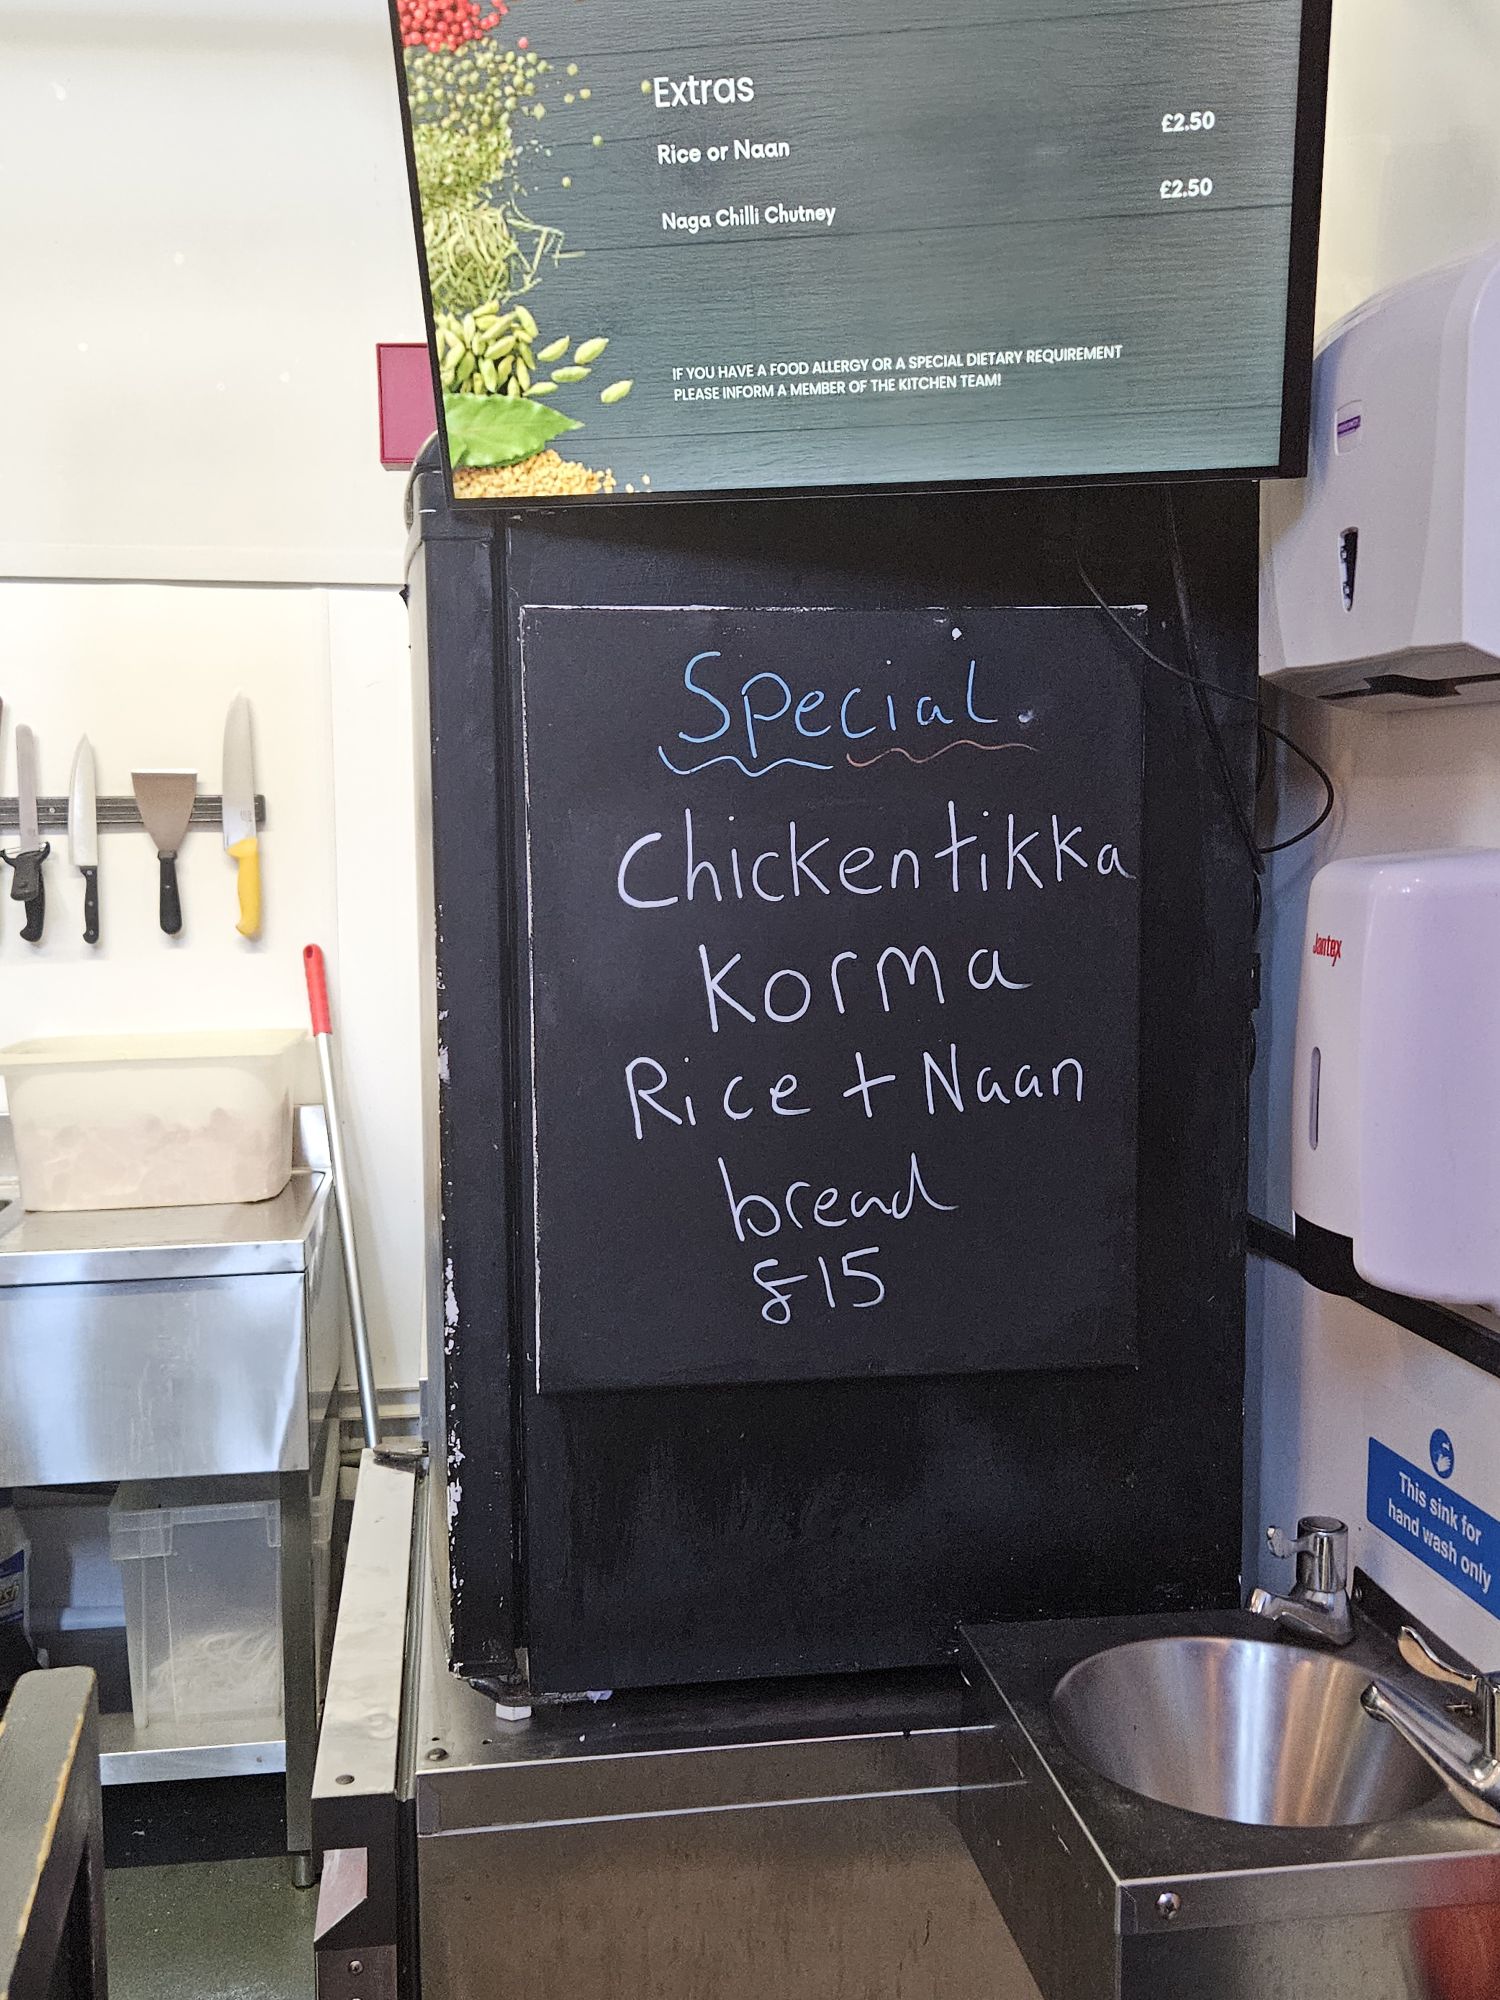 Extras
Rice or Naan £2.50
Naga Chilli Chutney £2.50
IF YOU HAVE A FOOD ALLERGY OR A SPECIAL DIETARY REQUIREMENT
PLEASE INFORM A MEMBER OF THE KITCHEN TEAM!
Special.
Chicken tikka
Korma
Rice + Naan
bread
£15
Jantex
This sink for
hand wash only